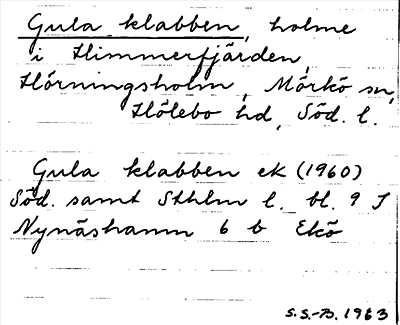 Gula klabben, holme
i Himmerfjärden,
Hörningsholm, Mörkö sn,
Hölebo hd, Söd. l.
Gula klabben ek (1960)
Söd. samt Sthlm l. bl. 9 I
Nynäshamn 6 b Ekö
S.S.-B. 1963